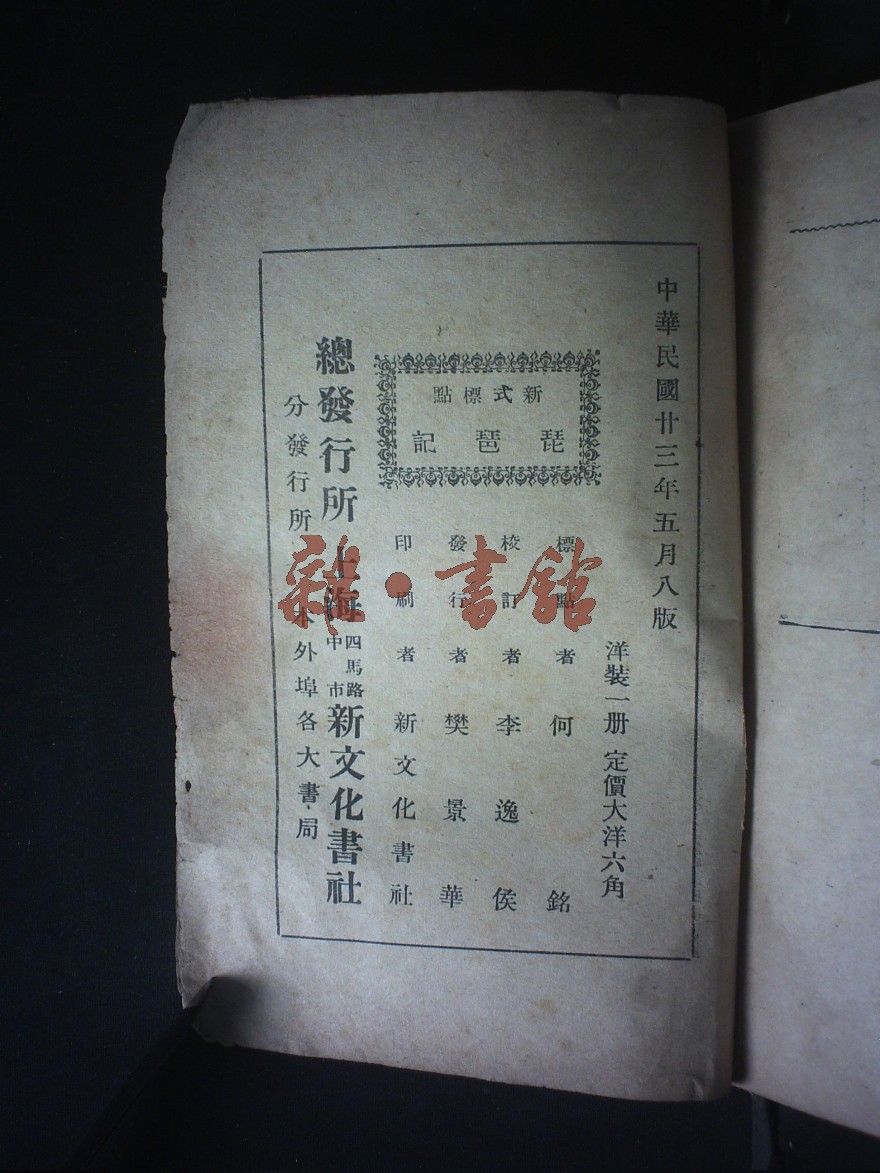 中華民國廿三年五月八版
洋裝一册 定價大洋六角
新式標點
琵琶記
標點者 何銘
校訂者 李逸侯
發行者 樊景華
印刷者 新文化書社
總發行所 上海四馬路中市新文化書社
分發行所 本外埠各大書局
雜·書館